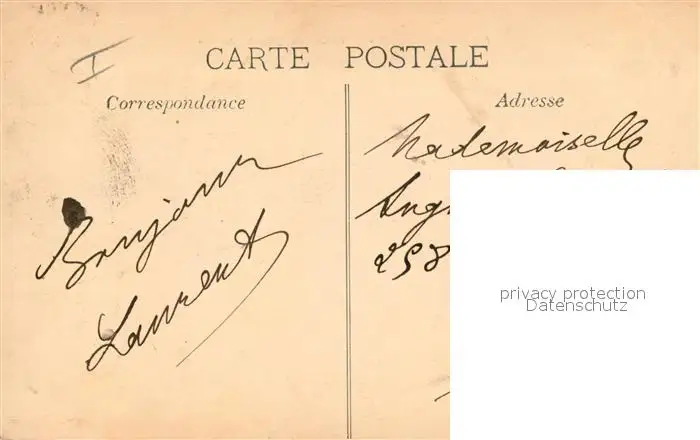 I
CARTE POSTALE
Correspondance
Adresse
Bonjour
Laurent
Mademoiselle
258
privacy protection
Datenschutz